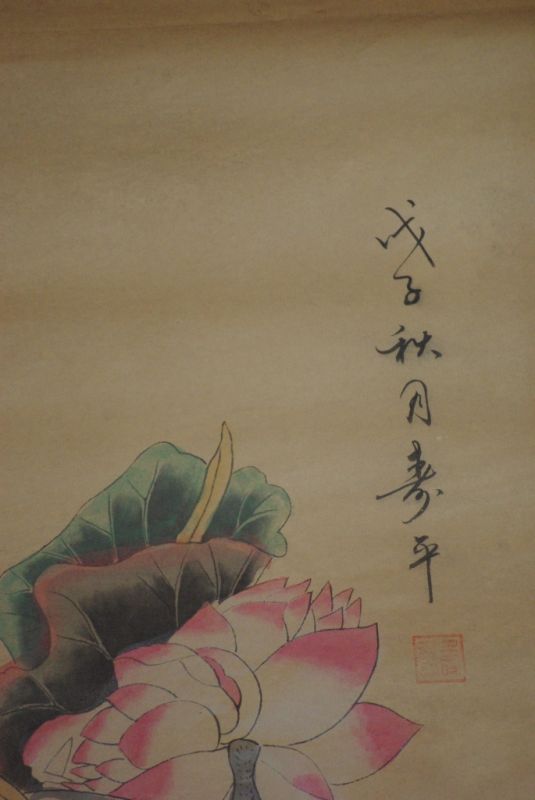 戊子秋月寿平